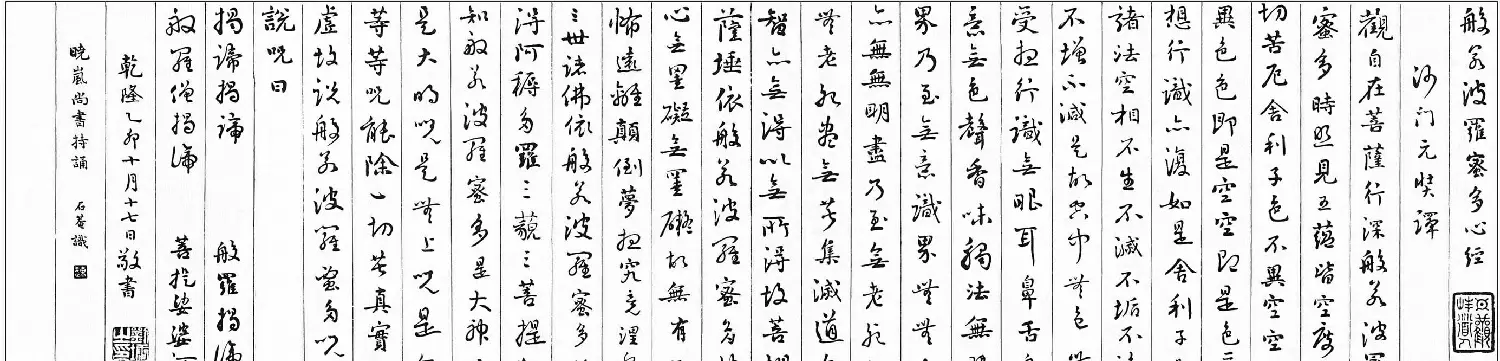 般若波羅蜜多心經
沙门元奘譯
觀自在菩薩行深般若波羅
蜜多時照見五蘊皆空度
切苦厄舍利子色不異空空
異色色即是空空即是色
想行識亦復如是舍利子
諸法空相不生不滅不垢不
不增不減是故空中無色
受想行識無眼耳鼻舌
意無色聲香味觸法無
界乃至無意識界無無
亦無無明盡乃至無老死
無老死盡無苦集滅道
智亦無得以無所得故菩
薩埵依般若波羅蜜多
心無罣礙無罣礙故無有
怖遠離顛倒夢想究竟涅
三世諸佛依般若波羅蜜多
得阿耨多羅三藐三菩提
知般若波羅蜜多是大神
是大明咒是無上咒是
等等咒能除一切苦真實
虛故說般若波羅蜜多咒
說咒曰
揭諦揭諦 般羅揭諦
般羅僧揭諦 菩提娑婆
乾隆乙卯十月十七日敬書
曉嵐尚書持誦 石菴識